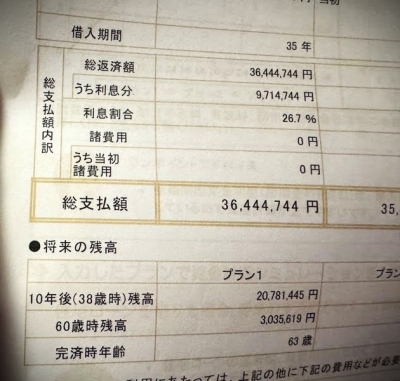 借入期間 35 年
総支払額内訳
総返済額 36,444,744 円
うち利息分 9,714,744 円
利息割合 26.7 %
諸費用 0 円
うち当初
諸費用 0 円
総支払額 36,444,744 円 35,
●将来の残高
プラン1 プラ
10年後(38歳時)残高 20,781,445 円
60歳時残高 3,035,619 円
完済時年齢 63 歳
にあたっては、上記の他に下記の費用などが必要